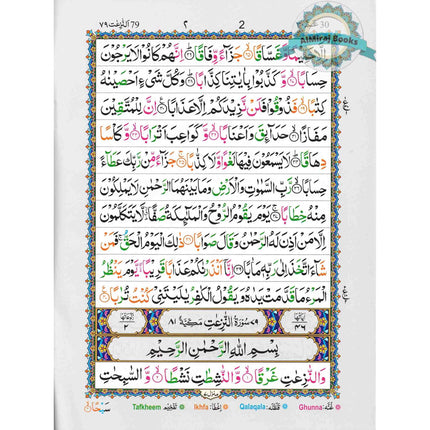 ٧٩ النّٰزِعٰت 79
٢
2
30
AlMiraj Books
اِلَّا حَمِیْمًا وَّ غَسَّاقًا ۙ جَزَآءً وِّفَاقًا ؕ اِنَّهُمْ كَانُوْا لَا یَرْجُوْنَ
حِسَابًا ۙ وَّ كَذَّبُوْا بِاٰیٰتِنَا كِذَّابًا ؕ وَ كُلَّ شَیْءٍ اَحْصَیْنٰهُ
كِتٰبًا ۙ فَذُوْقُوْا فَلَنْ نَّزِیْدَكُمْ اِلَّا عَذَابًا ؑ اِنَّ لِلْمُتَّقِیْنَ
مَفَازًا ۙ حَدَآىِٕقَ وَ اَعْنَابًا ۙ وَّ كَوَاعِبَ اَتْرَابًا ۙ وَّ كَاْسًا
دِهَاقًا ؕ لَا یَسْمَعُوْنَ فِیْهَا لَغْوًا وَّ لَا كِذّٰبًا ۚ جَزَآءً مِّنْ رَّبِّكَ عَطَآءً
حِسَابًا ۙ رَّبِّ السَّمٰوٰتِ وَ الْاَرْضِ وَ مَا بَیْنَهُمَا الرَّحْمٰنِ لَا یَمْلِكُوْنَ
مِنْهُ خِطَابًا ۚ یَوْمَ یَقُوْمُ الرُّوْحُ وَ الْمَلٰٓىِٕكَةُ صَفًّا ۙۗ لَّا یَتَكَلَّمُوْنَ
اِلَّا مَنْ اَذِنَ لَهُ الرَّحْمٰنُ وَ قَالَ صَوَابًا ذٰلِكَ الْیَوْمُ الْحَقُّ ۚ فَمَنْ
شَآءَ اتَّخَذَ اِلٰی رَبِّهٖ مَاٰبًا اِنَّاۤ اَنْذَرْنٰكُمْ عَذَابًا قَرِیْبًا ۖۚ یَّوْمَ یَنْظُرُ
الْمَرْءُ مَا قَدَّمَتْ یَدٰهُ وَ یَقُوْلُ الْكٰفِرُ یٰلَیْتَنِیْ كُنْتُ تُرٰبًا
اٰیَاتُهَا ٤٦
٧٩ سُوْرَةُ النّٰزِعٰتِ مَكِّیَّةٌ ٨١
رُكُوْعَاتُهَا ٢
بِسْمِ اللّٰهِ الرَّحْمٰنِ الرَّحِیْمِ
وَ النّٰزِعٰتِ غَرْقًا ۙ وَّ النّٰشِطٰتِ نَشْطًا ۙ وَّ السّٰبِحٰتِ
Ghunna: غُنَّه Qalaqala: قَلْقَلَه Ikhfa: اِخْفَا Tafkheem: تَفْخِیْم
سَبْحًا